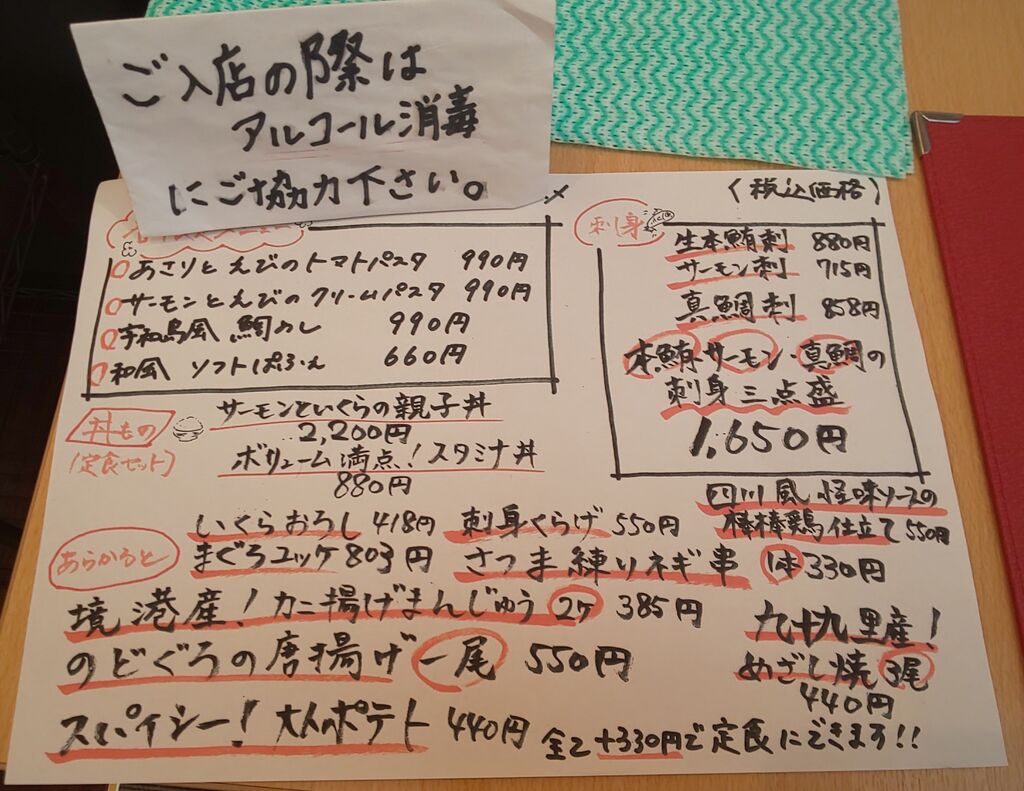 ご入店の際は
アルコール消毒
にご協力下さい。
(税込価格)
あさりとえびのトマトパスタ 990円
サーモンとえびのクリームパスタ 990円
宇和島風 鯛めし 990円
和風 ソフトぱふぇ 660円
刺身
生本鮪刺 880円
サーモン刺 715円
真鯛刺 858円
本鮪・サーモン・真鯛の
刺身三点盛
1,650円
丼もの
(定食セット)
サーモンといくらの親子丼
2,200円
ボリューム満点!スタミナ丼
880円
あらかると
いくらおろし 418円 刺身くらげ 550円
四川風怪味ソースの
棒棒鶏仕立て 550円
まぐろユッケ 803円 さつま練りネギ串 1本 330円
境港産!カニ揚げまんじゅう 2ケ 385円
のどぐろの唐揚げ 一尾 550円
九十九里産!
めざし焼 3尾
440円
スパイシー!大人のポテト 440円
全て+330円で定食にできます!!